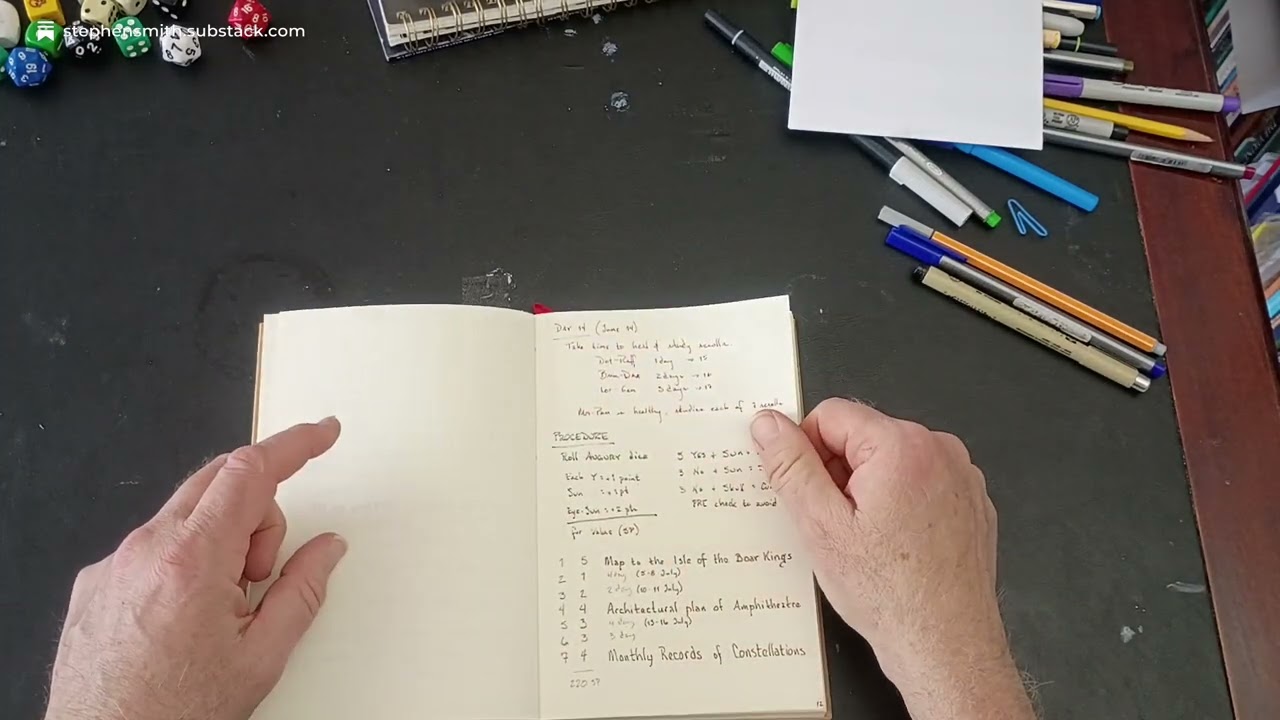 stephensmith.substack.com
DAY 14 (June 14)
Take time to heal & study scrolls.
1 day → 15
2 days →
3 days → 17
is healthy, studies each of 7 scrolls
PROCEDURE
Roll AUGURY dice
Each Y = +1 point
Sun = +1 pt
Eye-Sun = +2 pts
for value (SP)
5 YES + Sun =
3 No + Sun =
3 No + Skull =
check to avoid
1 5 Map to the Isle of the Boar Kings
2 1 4 day (5-8 July)
3 2 2 day (10-11 July)
4 4 Architectural plan of Amphitheatre
5 3 4 day (13-16 July)
6 3 3 day
7 4 Monthly Records of Constellations
220 SP
12